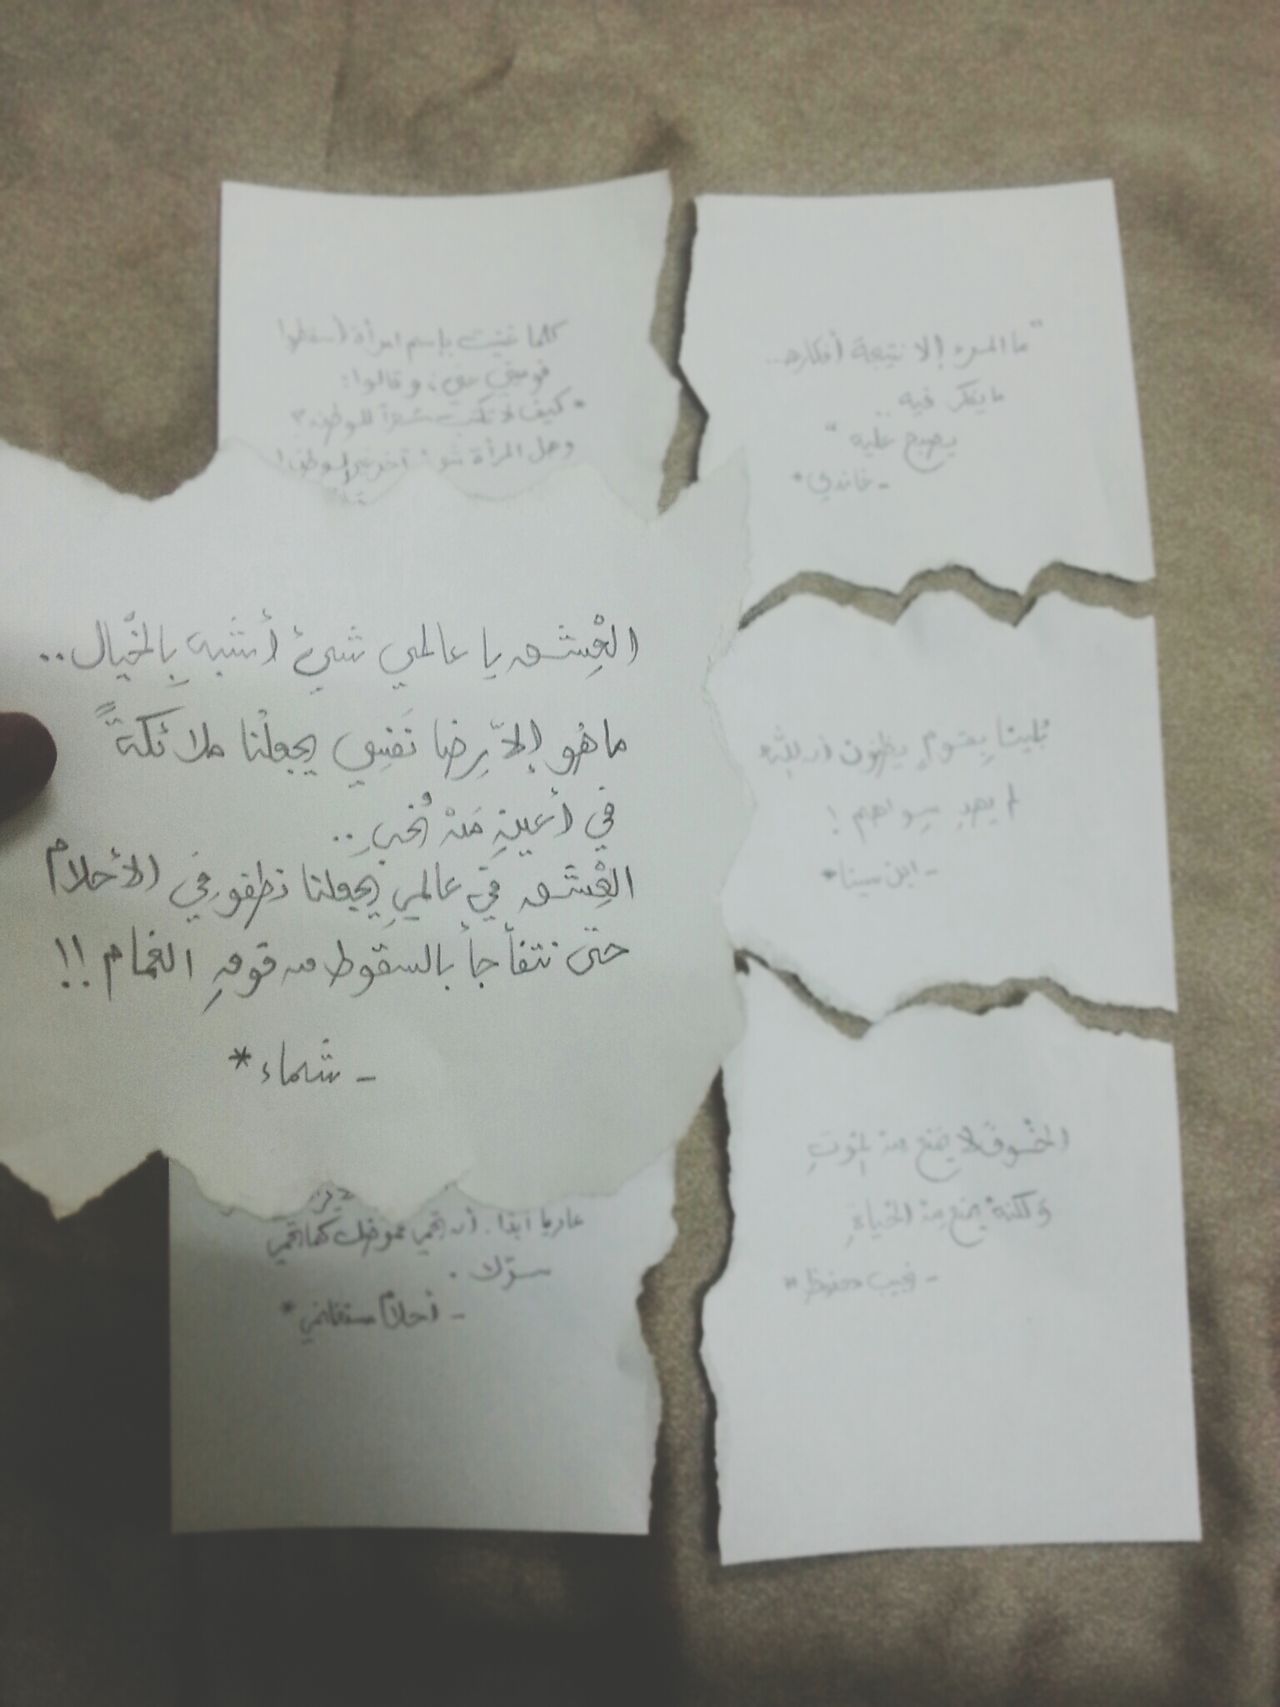 كلما غنيت بإسم امرأة أسقطوا
قوميتي عني، وقالوا:
"كيف لا تكتب شعراً للوطن؟
وهل المرأة شيءٌ آخر غير الوطن!
"ما المرء إلا نتيجة أفكاره..
ما يفكر فيه
يصبح عليه"
- غاندي*
العِشق يا عالمي شيئ أشبه بالخيال..
ما هُو إلاّ رِضا نَفسِي يجعلْنا ملائكةً
في أعينِ مَن نُحب..
العِشق في عالمي يجعلنا نطفو في الأحلام
حتى نتفأجأ بالسقوط من فوق الغمام!!
- شَماء*
بُلينا بِقومٍ يظنون أن الله
لم يهدِ سِواهم!
- ابن سينا*
الخَوف لا يمنع من المَوتِ
وَلكنهُ يمنع من الحَياةِ
- نجيب محفوظ*
عاريا أبدا. أن تحمي غموضك كما تحمي
سرّك.
- أحلام مستغانمي*